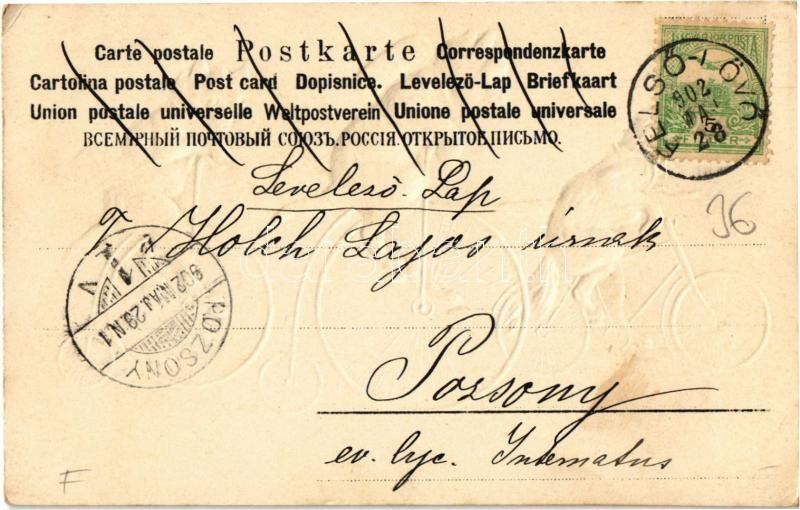 Carte postale Postkarte Correspondenzkarte
Cartolina postale Post card Dopisnice. Levelező-Lap Briefkaart
Union postale universelle Weltpostverein Unione postale universale
ВСЕМIРНЫЙ ПОЧТОВЫЙ СОЮЗЪ. РОССIЯ. ОТКРЫТОЕ ПИСЬМО.
FELSŐ-LÖVŐ
902
MÁJ
28
Levelező-Lap
T. Holch Lajos úrnak
POZSONY
902 MÁJ 29 N.1
Pozsony
ev. lyc. Internatus
36
F